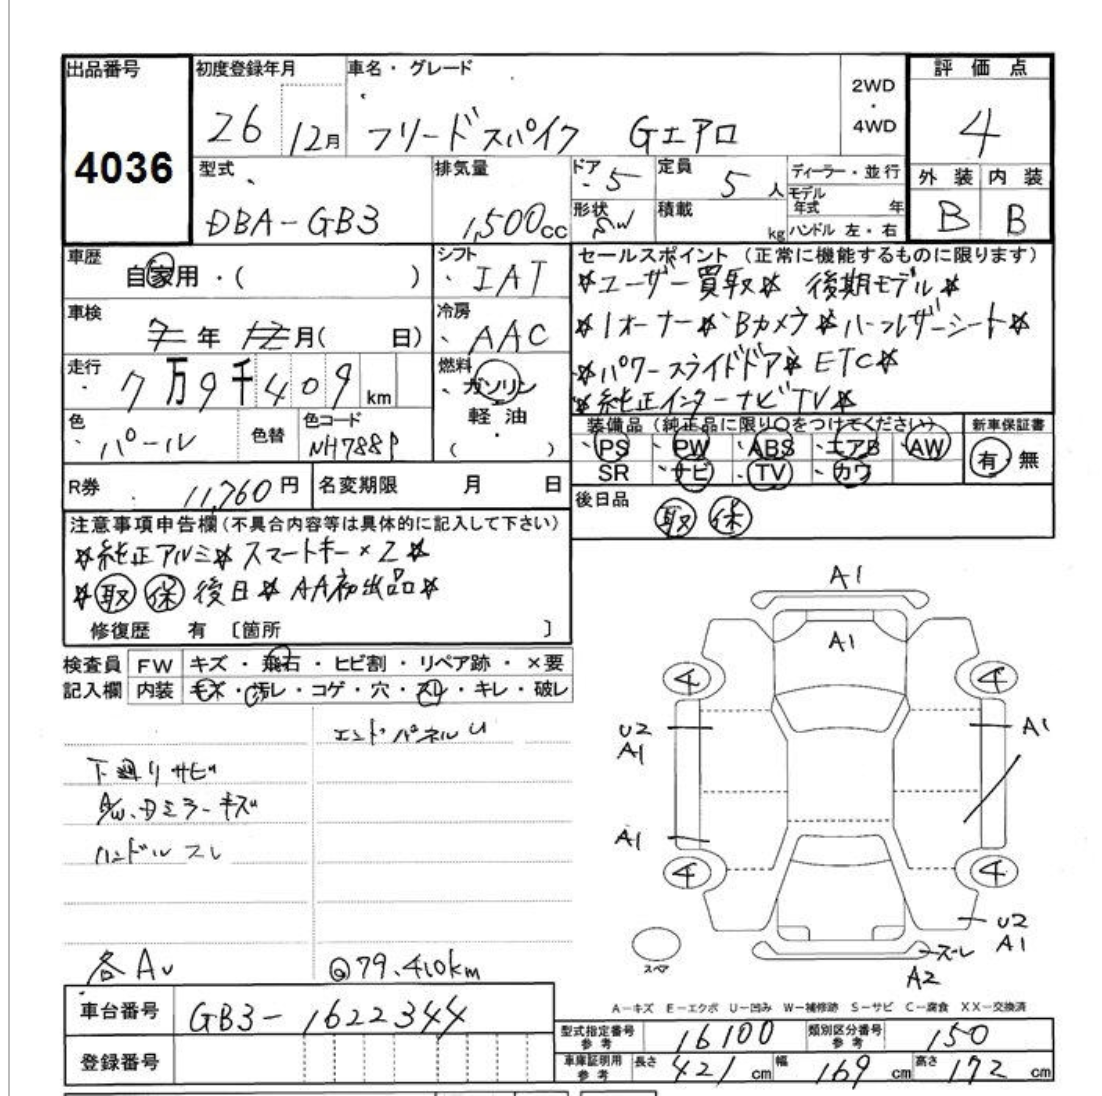 出品番号
4036
初度登録年月
26 12月
車名・グレード
フリードスパイク Gエアロ
2WD
・
4WD
評価点
4
外装 内装
B B
型式
DBA-GB3
排気量
1,500cc
ドア
5
定員
5人
ディーラー・並行
形状
SW
積載
kg
モデル年式 年
ハンドル 左・右
車歴
自家用・( )
シフト
IAT
車検
7年 12月( 日)
冷房
AAC
走行
7万9千409km
燃料
ガソリン
軽油
・
( )
色
パール
色替
色コード
NH788P
R券
11,760円
名変期限 月 日
セールスポイント (正常に機能するものに限ります)
☆ユーザー買取☆ 後期モデル☆
☆1オーナー☆Bカメラ☆ハーフレザーシート☆
☆パワースライドドア☆ETC☆
☆純正インターナビTV☆
装備品 (純正品に限り○をつけてください)
PS PW ABS エアB AW
SR ナビ TV カワ
新車保証書
有 無
後日品
取 保
注意事項申告欄(不具合内容等は具体的に記入して下さい)
☆純正アルミ☆ スマートキー×2☆
☆取 保 後日☆ AA初出品☆
修復歴 有 〔箇所 〕
検査員記入欄
FW キズ・飛石・ヒビ割・リペア跡・×要
内装 キズ・汚レ・コゲ・穴・スレ・キレ・破レ
エンドパネルU
下廻りサビ
A/W、Dミラーキズ
ハンドルスレ
各AU
@79.410km
A1
A1
4 4
U2
A1
A1
A1
4 4
U2
A1
スレ
A2
スペア
A－キズ E－エクボ U－凹み W－補修跡 S－サビ C－腐食 XX－交換済
車台番号
GB3-1622344
登録番号
型式指定番号 参考
16100
類別区分番号 参考
150
車庫証明用 参考
長さ 421cm 幅 169cm 高さ 172cm